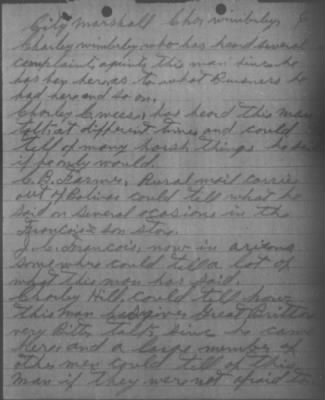 City Marshall Chas, wimberley
Charley wimberley who has heard several
complaints against this man since he
has ben here as to what Buisness he
had here and so on,
Charley has heard this man
talk at different times and could
tell of many harsh things he said
if he only would.
C. B. Farmer, Rural mail carrier
out of Bolivar could tell what he
said on several ocasions in the
Francois & son store.
J. C. Francois, now in arizona
Somewhere could tell a lot of
what this man has said.
Charley Hill, could tell how
this man gives Great Britton
very Bitter talks since he came
here and a large member of
other men could tell of this
man if they were not afraid to